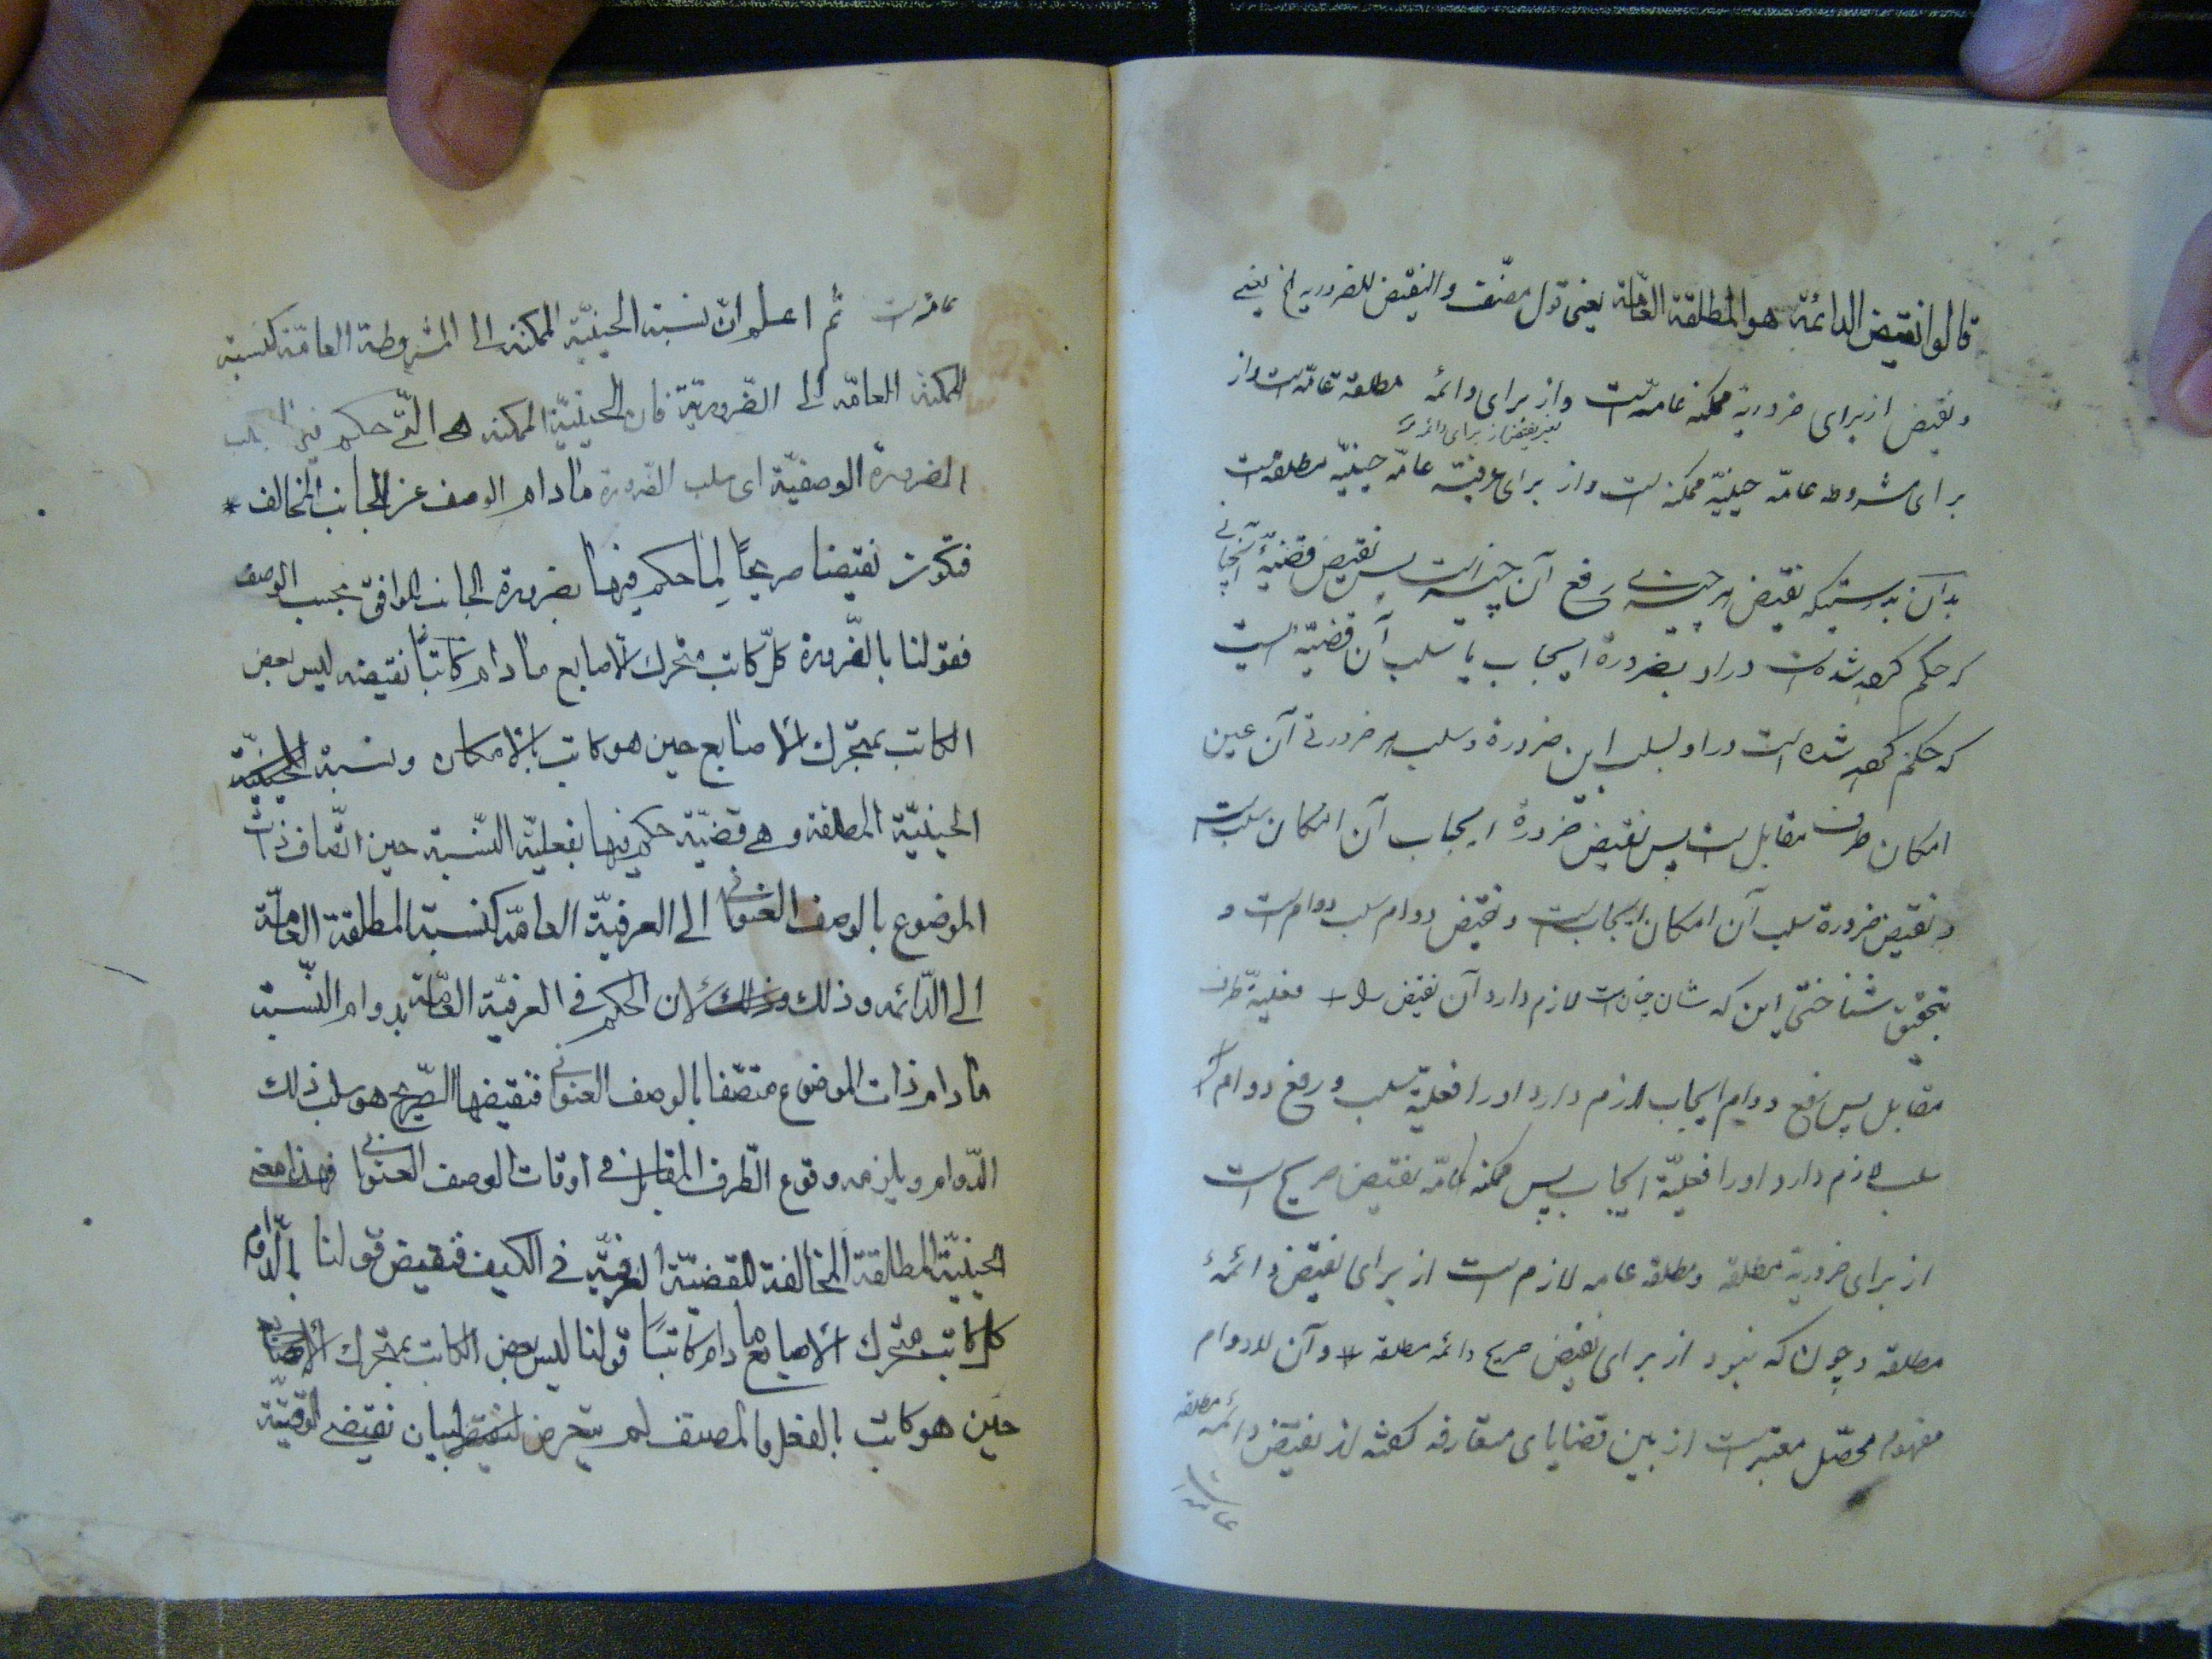 قالوا نقيض الدائمة هو المطلقة العامّة يعنى قول مصنّف والنقيض للضروريه الخ يعنى
ونقيض از براى ضروريه ممكنه عامه است واز براى دائمه مطلقه عامّه است واز
يعنى نقيض از براى دائمه
براى مشروطه عامّه حينيّه ممكنه است واز براى عرفيّه عامّه حينيّه مطلقه است
بدان بدرستيكه نقيض هر چيزى رفع آن چيز است پس نقيض قضيّهٔ آنچنانى
كه حكم كرده شده است در او بضرورة ايجاب يا سلب آن قضيّه ايست
كه حكم كرده شده است در او بسلب اين ضرورة وسلب هر ضرورتى آن عين
امكان طرف مقابل است پس نقيض ضرورة ايجاب آن امكان سلب است
ونقيض ضرورة سلب آن امكان ايجاب است ونقيض دوام سلب دوام است و
بتحقيق شناختى اين كه شان چنان است لازم دارد آن نقيض را فعليّة طرف
مقابل پس رفع دوام ايجاب لازم دارد او را فعليّة سلب ورفع دوام
سلب لازم دارد او را فعليّة ايجاب پس ممكنه عامّه نقيض صريح است
از براى ضروريه مطلقه ومطلقه عامه لازم است از براى نقيض دائمهٔ
مطلقه وچون كه نبود از براى نقيض صريح دائمه مطلقه وآن لادوام
مفهوم محصّل معتبر است از بين قضاياى متعارفه گفتند نقيض دائمهٔ مطلقه
عامه است ثم اعلم انّ نسبة الحينيّة الممكنة الى المشروطة العامّة كنسبة
الممكنة العامّة الى الضّروريّة فان الحينيّة الممكنة هى الّتى حكم فيها بسلب
الضرورة الوصفيّة اى سلب الضّرورة مادام الوصف عن الجانب المخالف *
فتكون نقيضا صريحًا لما حكم فيها بضرورة الجانب الموافق بحسب الوصف
فقولنا بالضّرورة كلّ كاتب متحرك الاصابع مادام كاتبًا نقيضه ليس بعض
الكاتب بمتحّرك الاصابع حين هو كاتب بالامكان ونسبة الحينيّة
الحينيّة المطلقة وهى قضيّة حكم فيها بفعليّة النّسبة حين اتّصاف ذات
الموضوع بالوصف العنوانى الى العرفيّة العامّة كنسبة المطلقة العامّة
الى الدّائمه وذلك وذلك لان الحكم فى العرفيّة العامّة بدوام النّسبة
مادام ذات الموضوع متصّفا بالوصف العنوانى فنقيضها الصّريح هو سلب ذلك
الدّوام ويلزمه وقوع الطّرف المقابل فى اوقات الوصف العنوانى فهذا معنى
الحينيّة المطلقة المخالفة للقضيّة العرفيّة فى الكيف فنقيض قولنا بالدّوام
كل كاتب متحّرك الاصابع مادام كاتبًا قولنا ليس بعض الكاتب بمتحّرك الاصابع
حين هو كاتب بالفعل والمصنف لم يتعرض لبيان نقيضى الوقتيّة